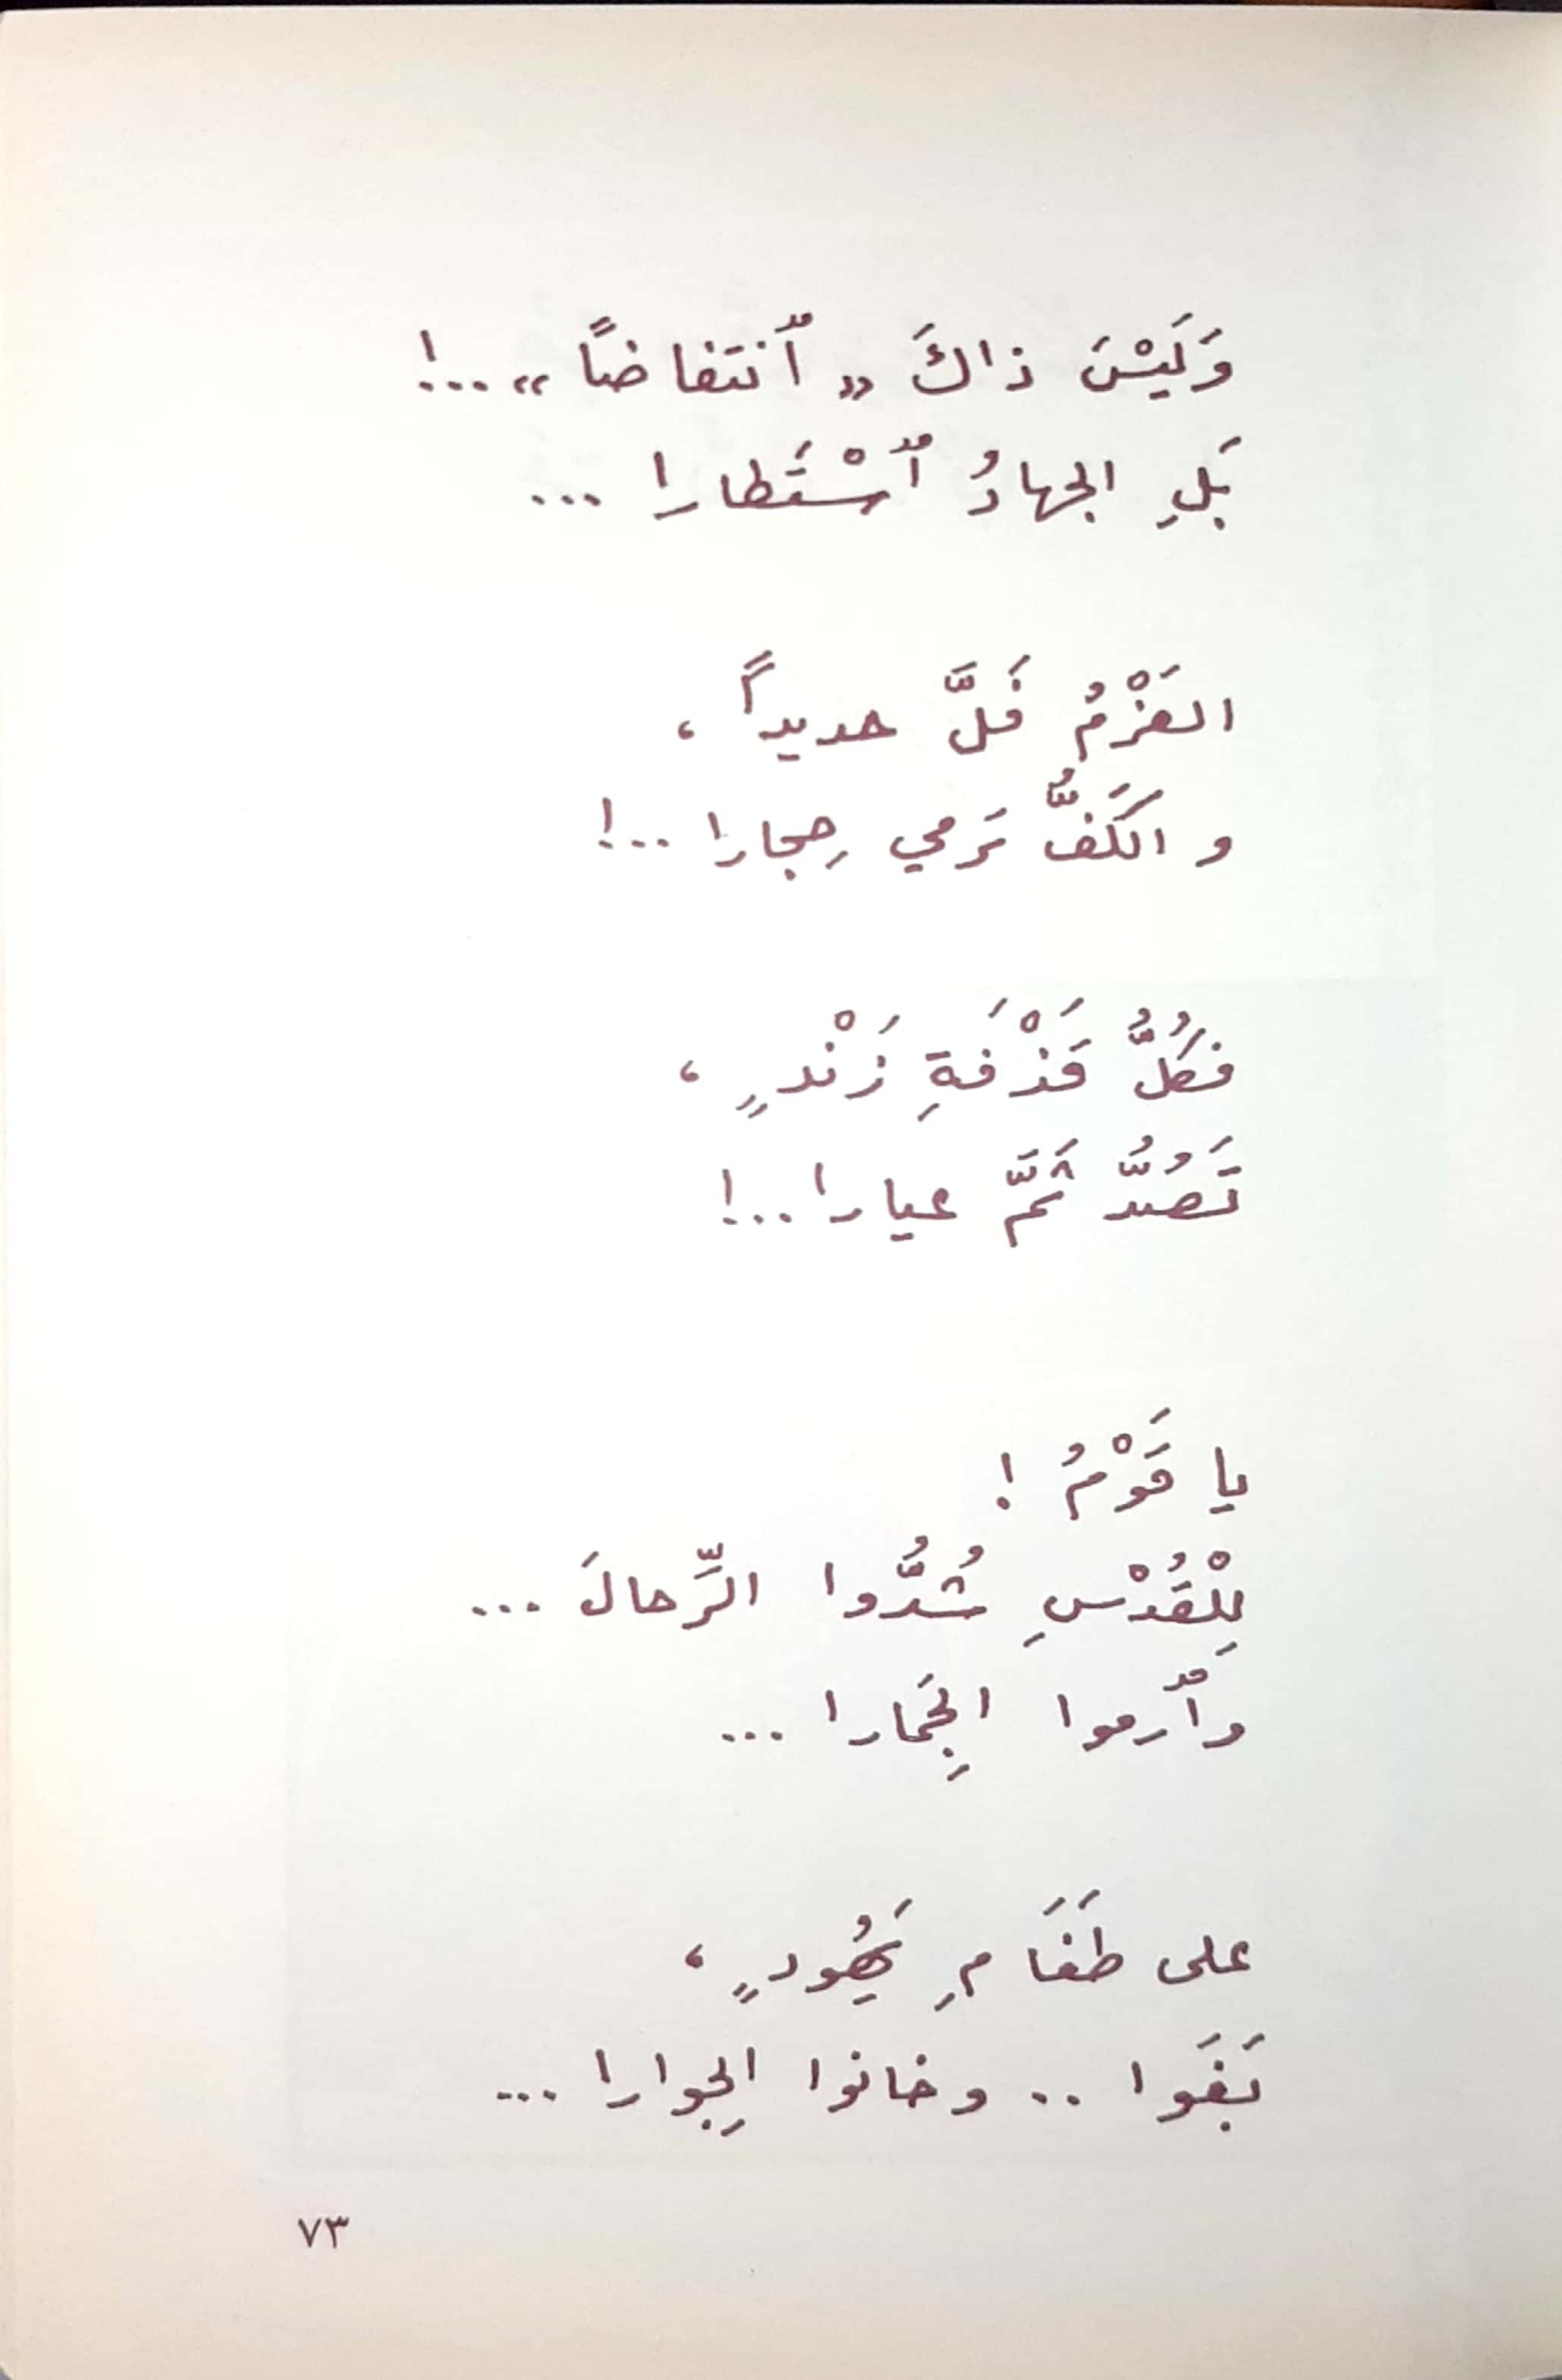 وَلَيْسَ ذاكَ « ٱنتفاضاً » ...!
بَلِ الجهادُ ٱسْتَطارا ...
العَزْمُ فَلَّ حديداً ،
و الكَفُّ تَرمي حِجارا ...!
فكُلُّ قَذْفَةِ زَنْدٍ ،
تَصُدُّ ثَمَّ عيارا ...!
يا قَوْمُ !
لِلْقُدْسِ شُدُّوا الرِّحالَ ...
وَٱرموا الجِمَارا ...
على طَغَامِ يَهُودٍ ،
بَغَوا .. وخانوا الجِوارا ...
٧٣